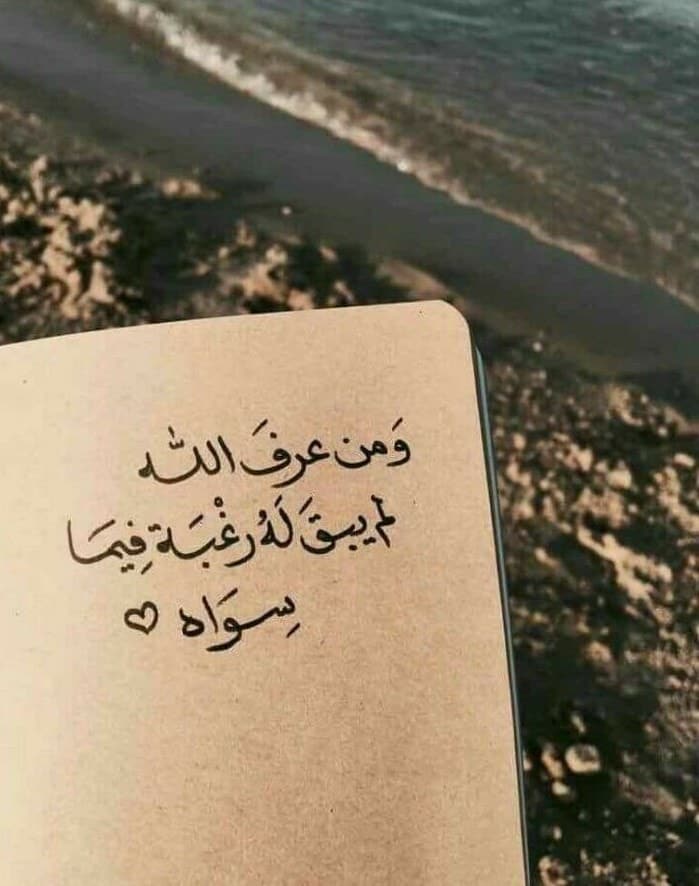 وَمن عرفَ اللّه
لم يبقَ لَهُ رغْبَة فِيمَا
سِوَاه ♡